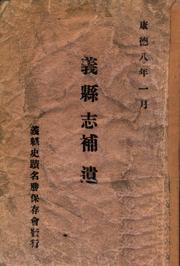 康德八年一月
義縣志補遺
義縣史蹟名勝保存會發行